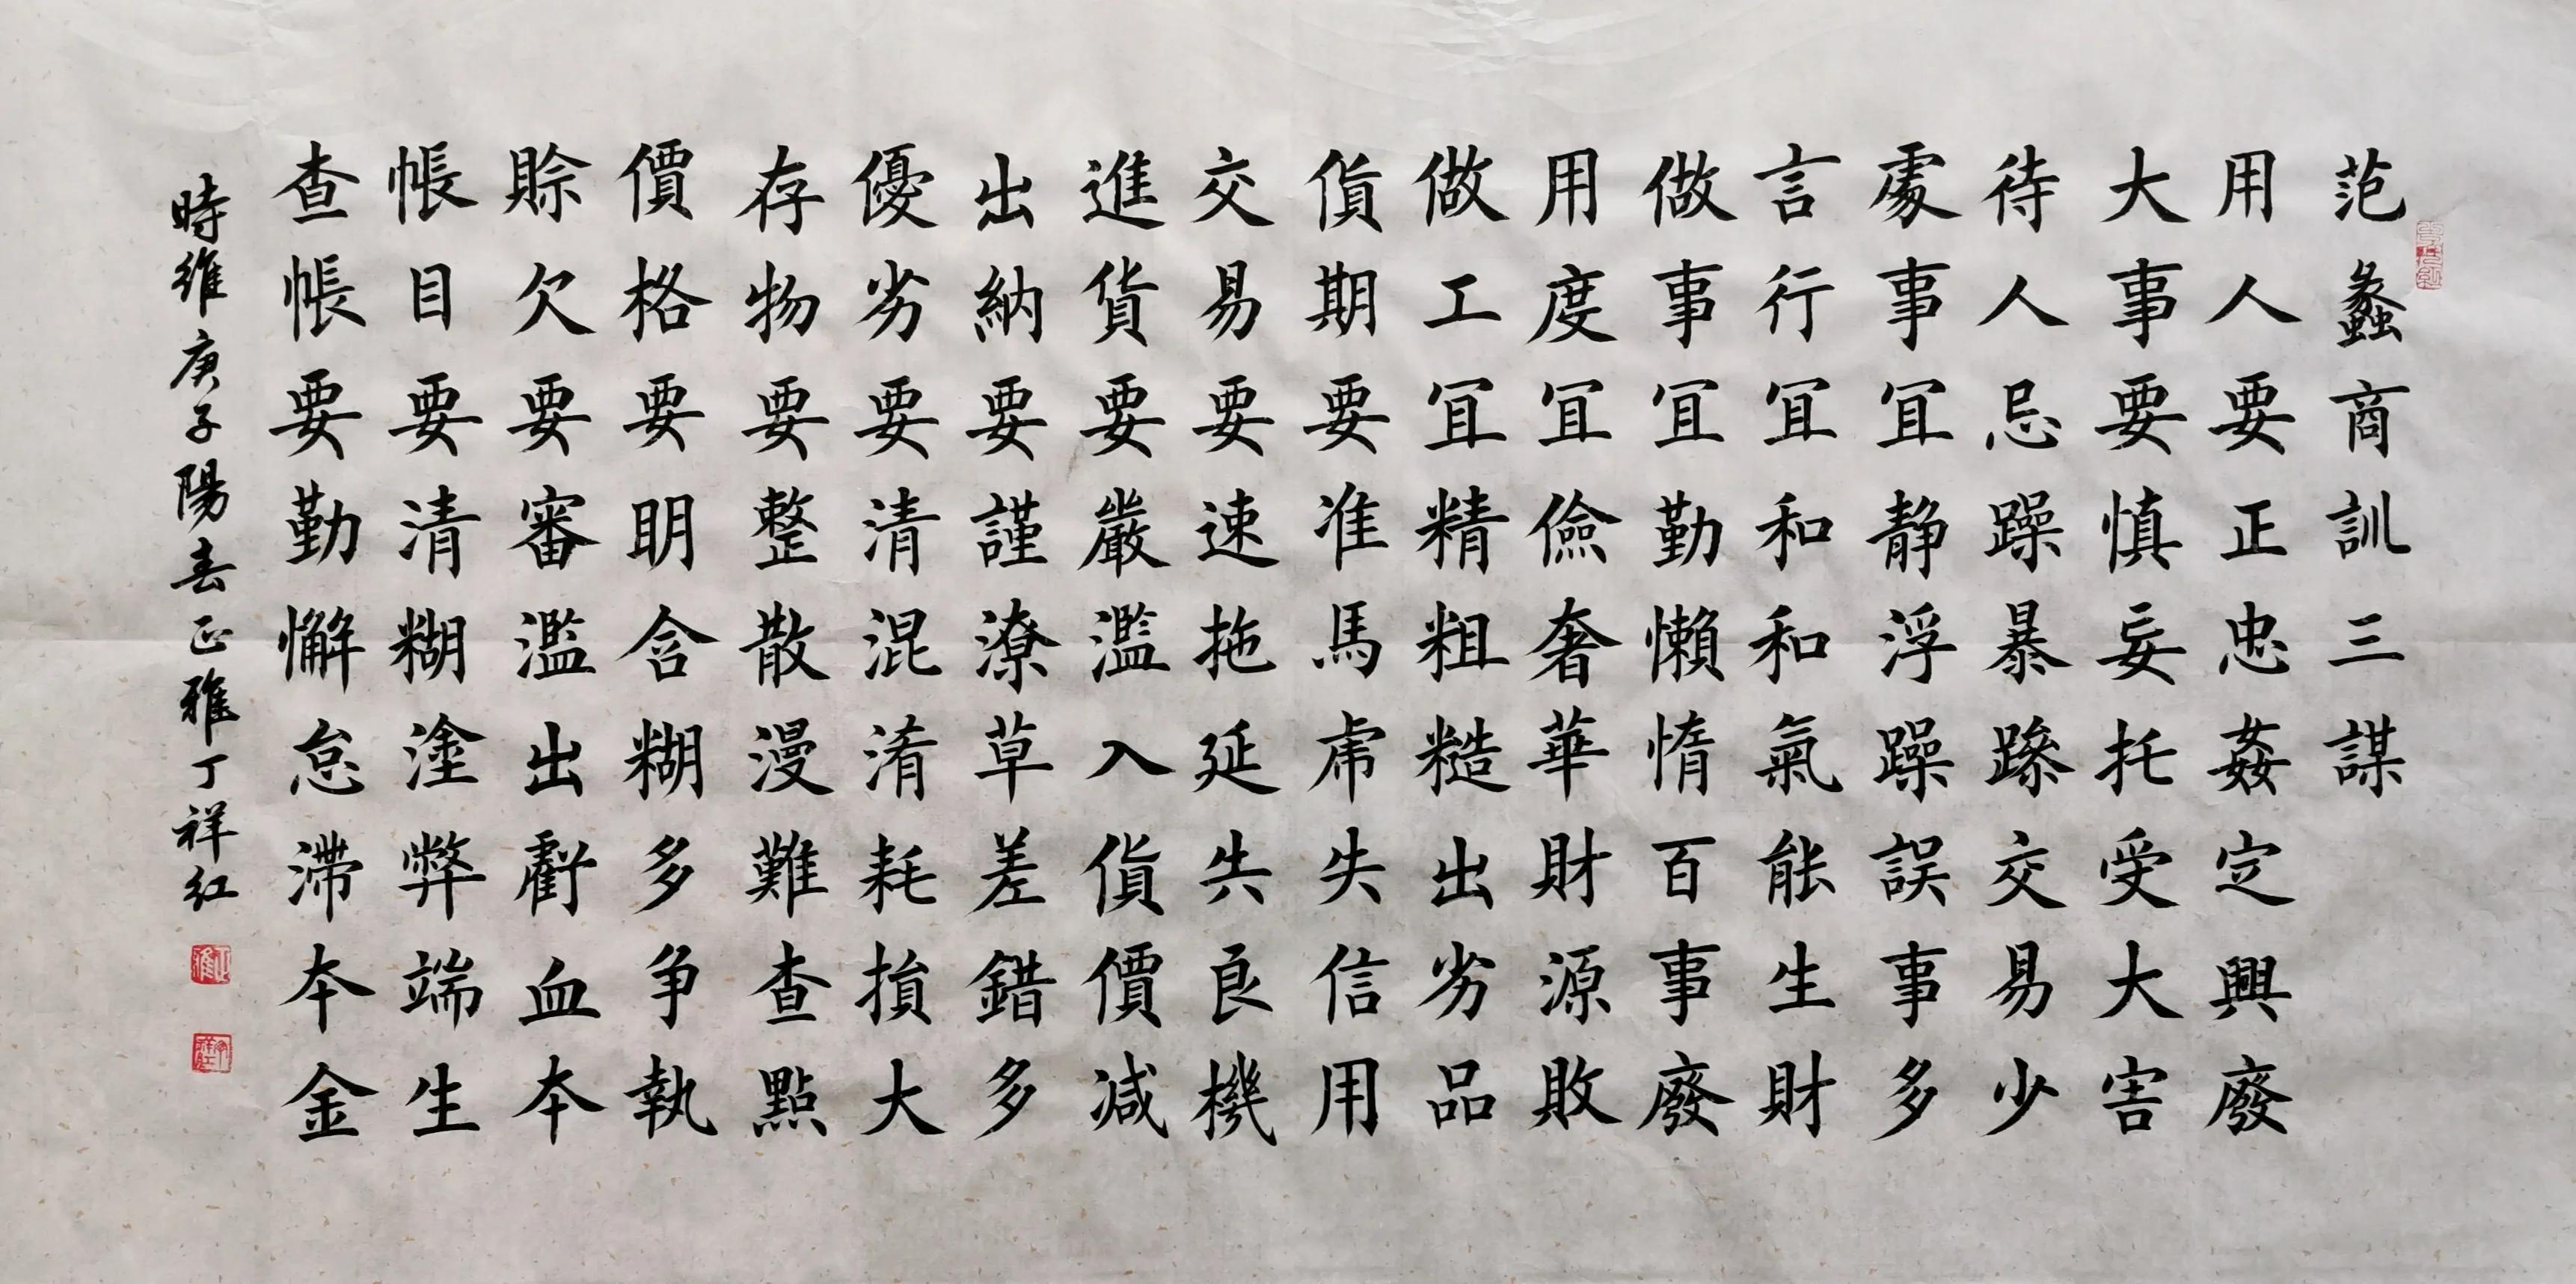 范蠡商訓三謀
用人要正忠姦定興廢
大事要慎妄托受大害
待人忌躁暴蹂交易少
處事宜静浮躁誤事多
言行宜和和氣能生財
做事宜勤懶惰百事廢
用度宜儉奢華財源敗
做工宜精粗糙出劣品
貨期要准馬虎失信用
交易要速拖延失良機
進貨要嚴濫入貨價减
出納要謹潦草差錯多
優劣要清混淆耗損大
存物要整散漫難查點
價格要明含糊多争執
賒欠要審濫出虧血本
帳目要清糊塗弊端生
查帳要勤懈怠滯本金
時維庚子陽春正雅丁祥红